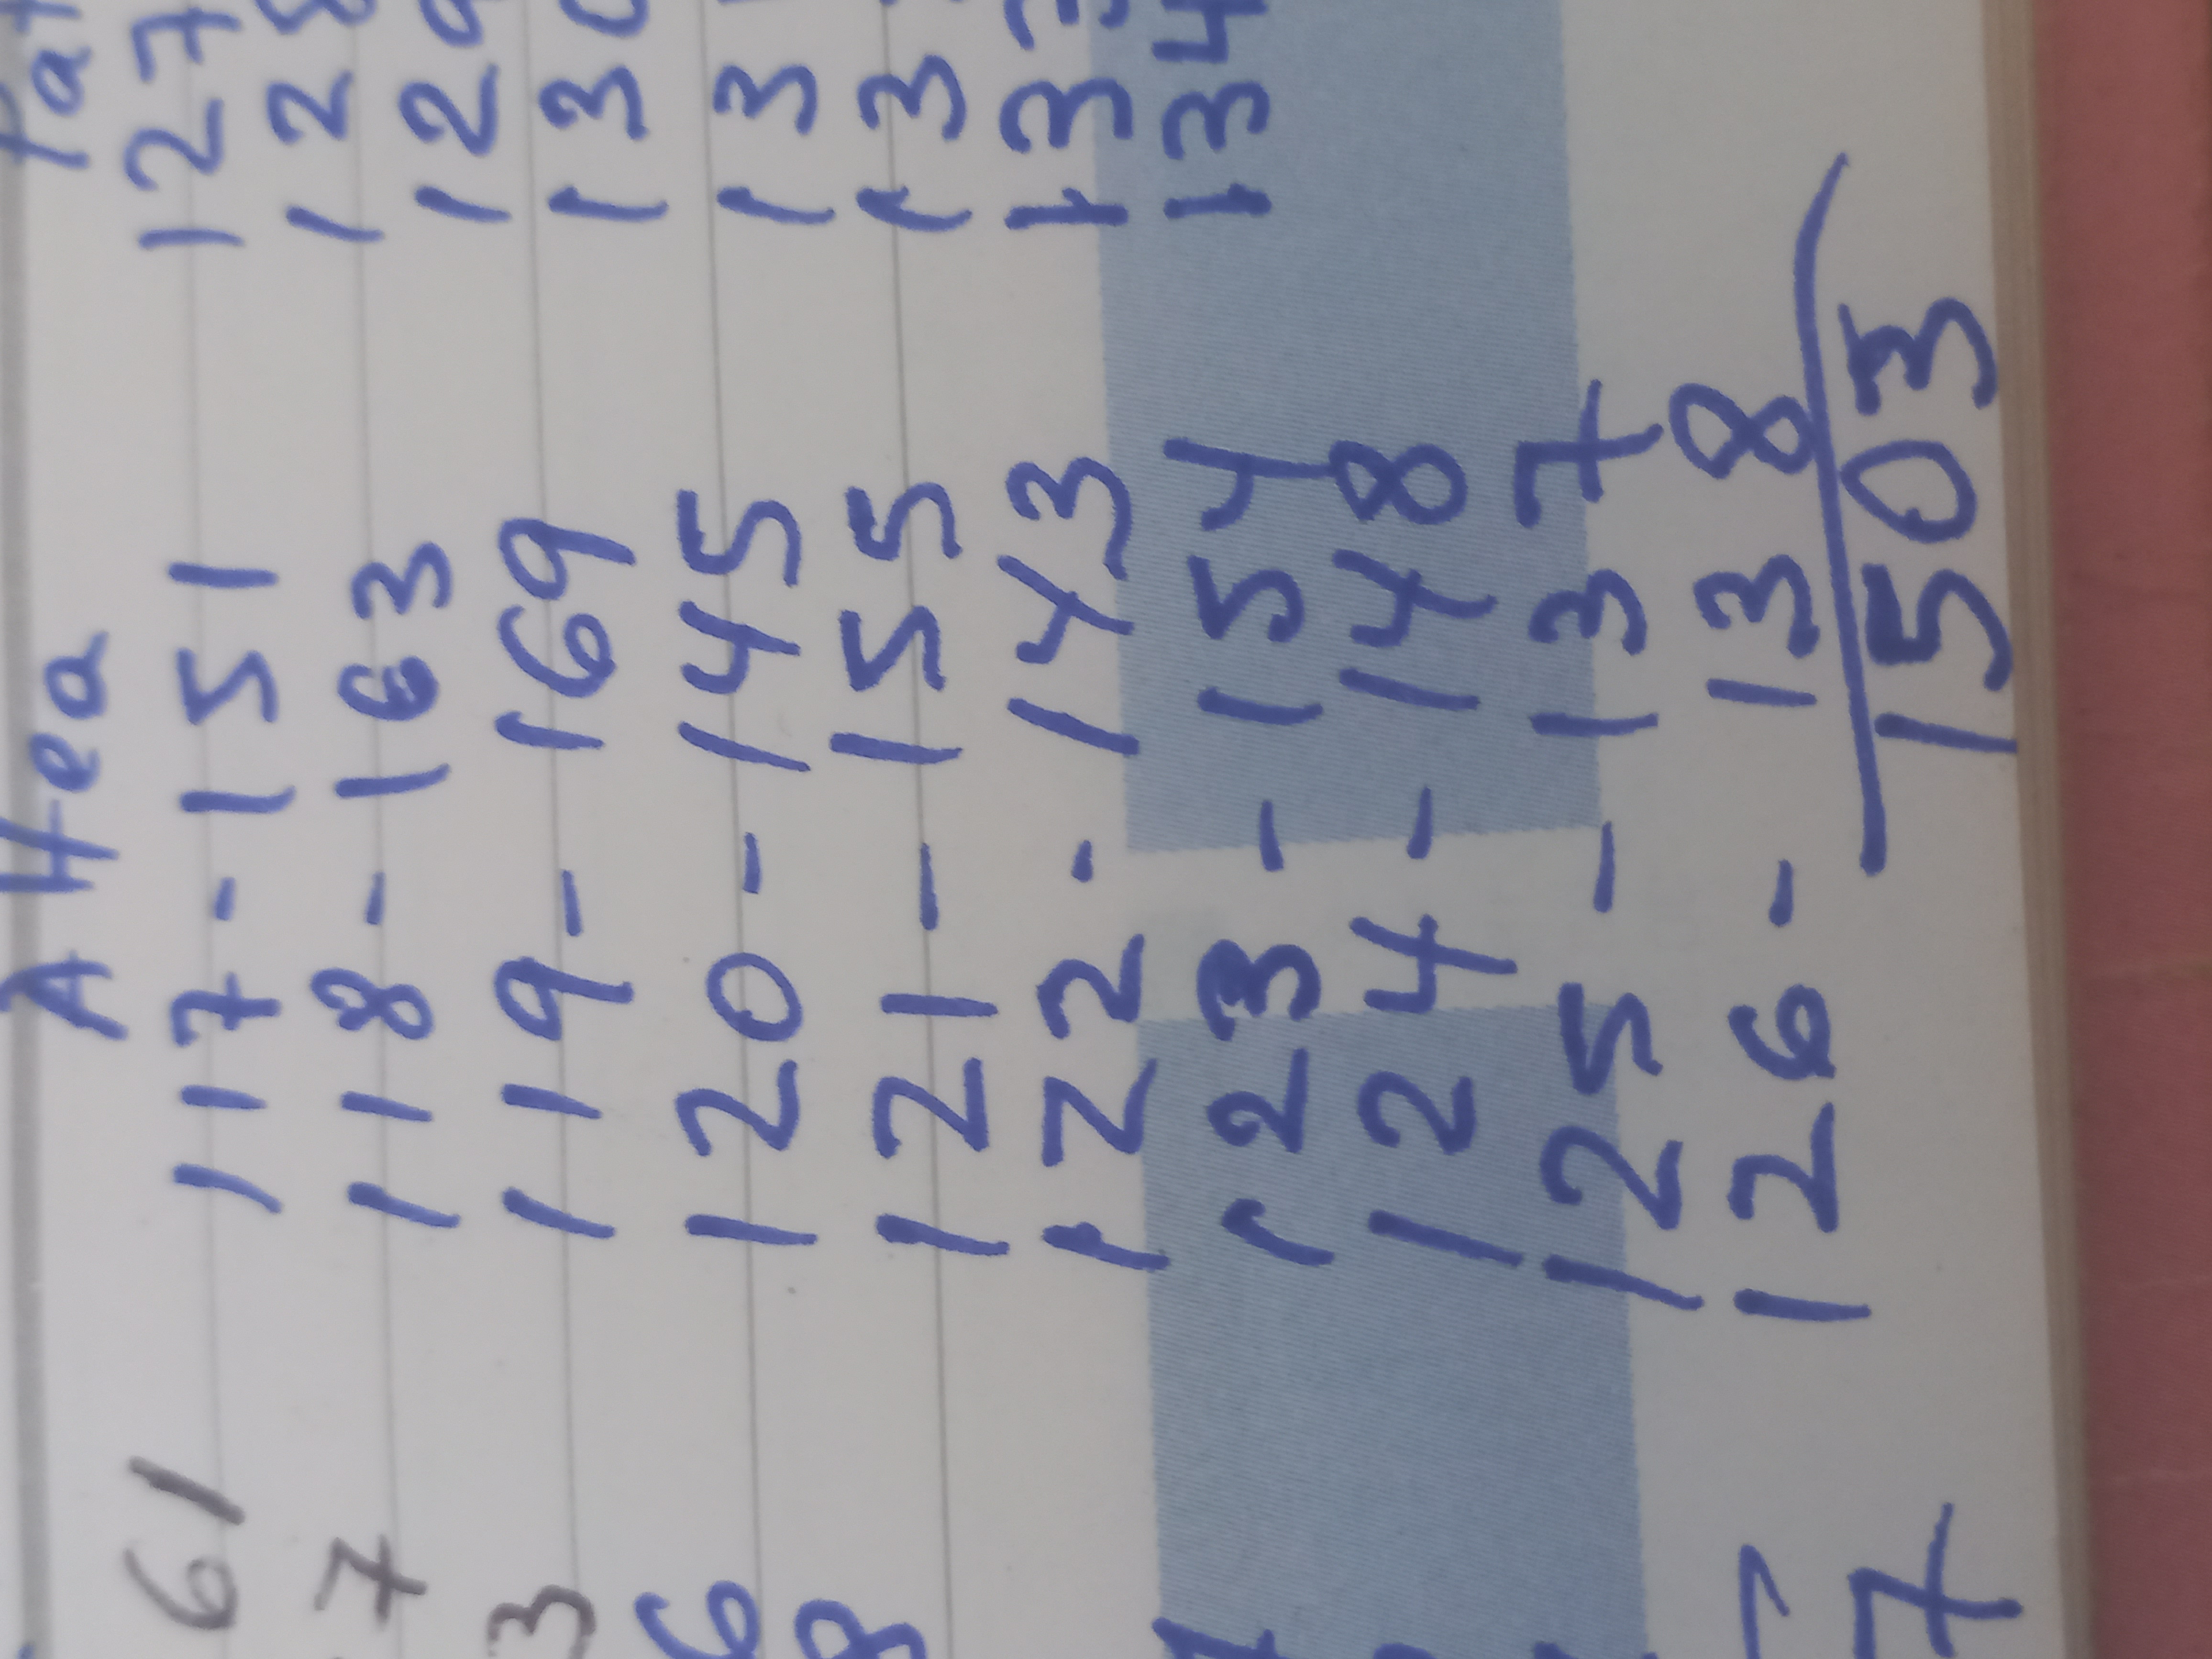 A Hea
117 - 151
118 - 163
119 - 169
120 - 145
121 - 155
122 - 143
123 - 154
124 - 148
125 - 137
126 - 138
1503
61
7
3
6
8
7
127
128
129
130
13
13
133
134